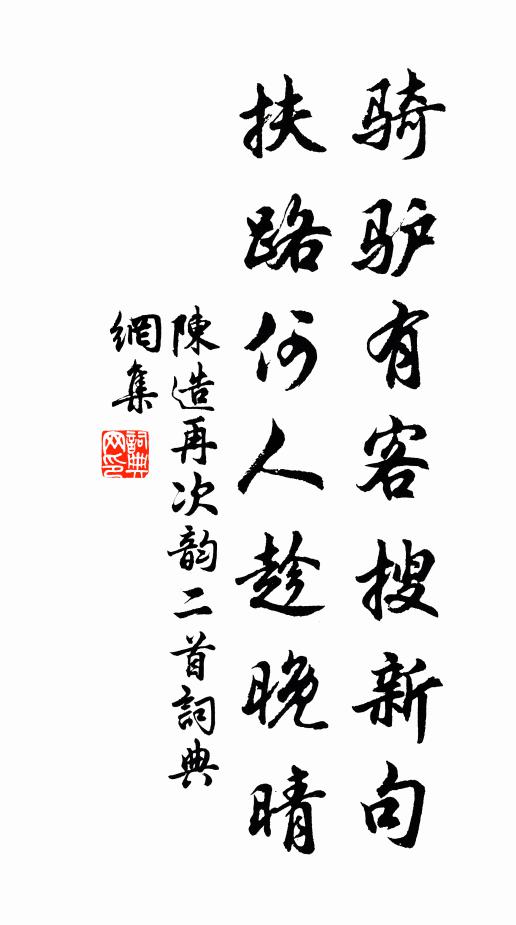 骑驴有客搜新句
扶路何人趁晚晴
陳造再次韵二首詞典
網集
詞典
网印